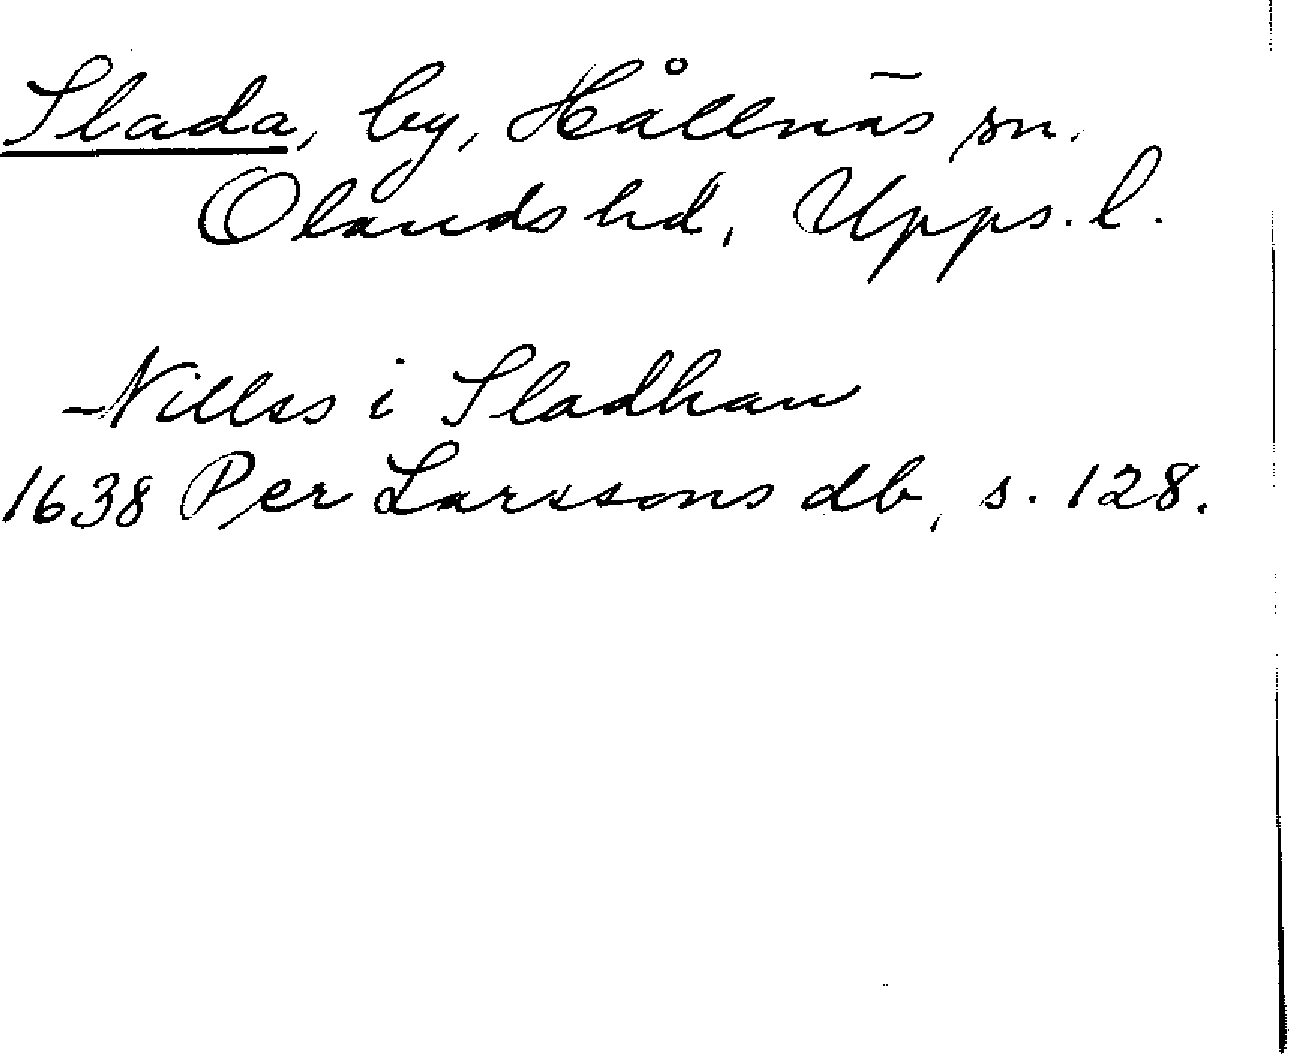 Slada, by, Hållnäs sn.
Olands hd, Upps. l.
Nillss i Sladhan
1638 Per Larssons db, s. 128.